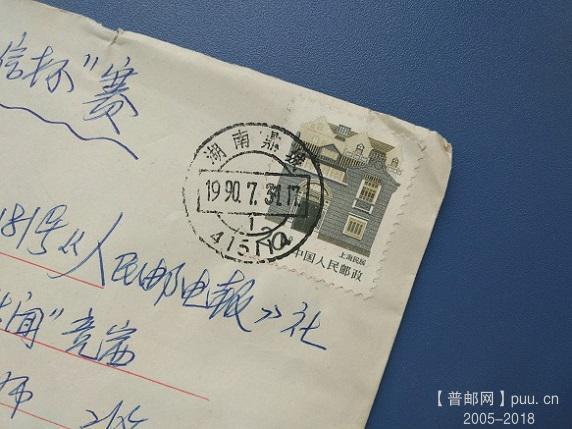 信杯"赛
湖南鼎城
1990.7.31.17
1
上海民居
中国人民邮政
1819号《人民邮电报》社
闻"竞赛
师
【普邮网】puu.cn
2005-2018